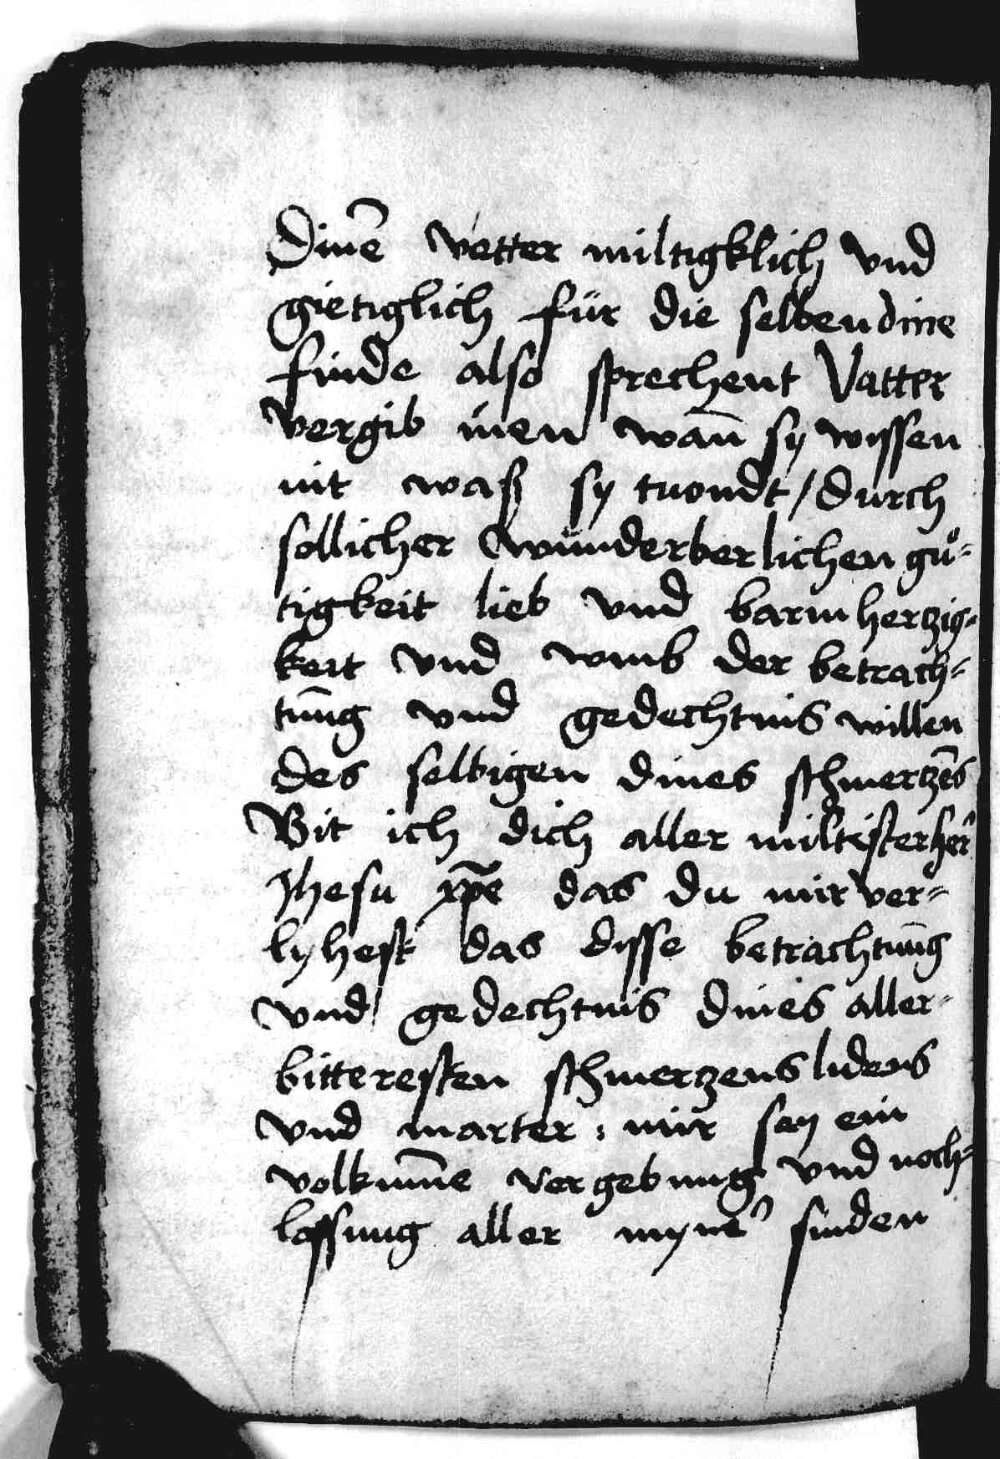 Dinē vetter miltigklich vnd
gietiglich für die selben dine
finde also sprechent Vatter
vergib inen wan̄ sy wissen
nit waß sy tuondt / durch
sollicher wunderberlichen guͦ-
tigkeit lieb vnd barmhertzig-
keit vnd wmb der betrach-
tūng vnd gedechtnis willen
des selbigen dines schmertzēs
Bit ich dich aller miltister her̄
Jhesu xp̄e das du mir ver-
lyhest das disse betrachtūng
vnd gedechtnis dines aller-
bitteresten schmertzens lidens
vnd marter : mir sey ein
volkum̄e vergebung vnd noch-
lossung aller myneʼ sinden